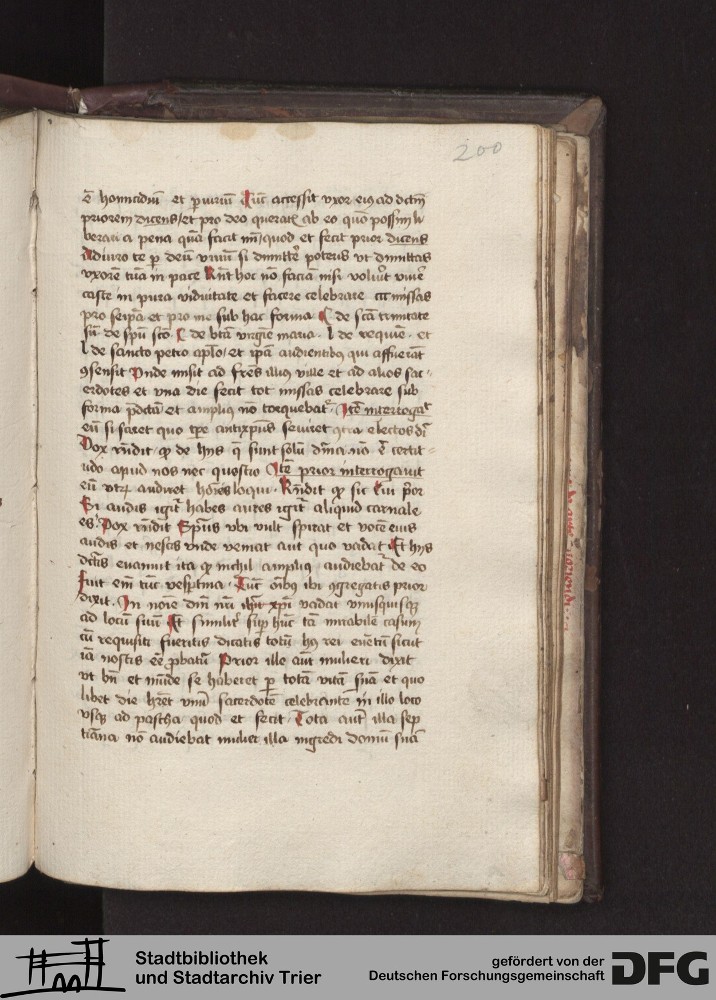 200
ē homicidiū et ꝑiuriū Tūc accessit vxor eiꝰ ad dctm̄
priorem dicens / et pro deo querat ab eo quō possim li
berari a pena quā facit m̄ / quod et fecit prior dicens
Adiuro te ꝑ deū viuū si dimittē poteris vt dimittas
vxorē tuā in pace Rn̄t hoc nō faciā nisi voluīt viuē
caste in pura viduitate et facere celebrare missas
pro seip̄a et pro me sub hac forma de sc̄ā trinitate
de spū scō de btā virgīe maria l de requiē et
l de sancto petro apl̄o / et ip̄a audientibꝰ qui affuerāt
ꝯsensit Vnde misit ad fr̄es illiꝰ ville et ad alios sac-
erdotes et vna die fecit tot missas celebrare sub
forma p̄dctā et ampliꝰ nō torquebat Itē interrogat
eū si sciret quo tp̄e antixp̄us seuiret ꝯtra electos dī
Vox rn̄dit ꝙ de hijs q̄ sunt solū dn̄ica nō ē certit-
udo apud nos nec questio Itē prior interrogauit
eū vtrū audiret hoīes loqui Rn̄dit ꝙ sic Cui p̄or
Si audis igit̄ habes aures igit̄ aliquid carnale
es Vox rn̄dit Spūs vbi vult spirat et vocē eius
audis et nescis vnde veniat aut quo vadat Et hijs
dctīs euanuit ita ꝙ nichil ampliꝰ audiebat̄ de eo
fuit em̄ tūc vesp̄tina Tūc oībꝰ ibi ꝯgregatis prior
dixit In noīe dn̄i nr̄i ihū xp̄i vadat vnusquisqꝫ
ad locū suū Et similit̄ sup̄ hūc tā mirabilē casum
cū requisiti fueritis dicatis totū hꝰ rei euētū sicut
iā nostis eē ꝓbatū Prior ille aūt mulieri dixit
vt bn̄ et mūde se haberet ꝑ totā vitā suā et quo
libet die hr̄et vnū sacerdotē celebrantē in illo loco
vsqꝫ ad pascha quod et fecit Tota aūt illa sep
timana nō audiebat mulier illa ingredi domū suā
Stadtbibliothek
und Stadtarchiv Trier
gefördert von der
Deutschen Forschungsgemeinschaft
DFG